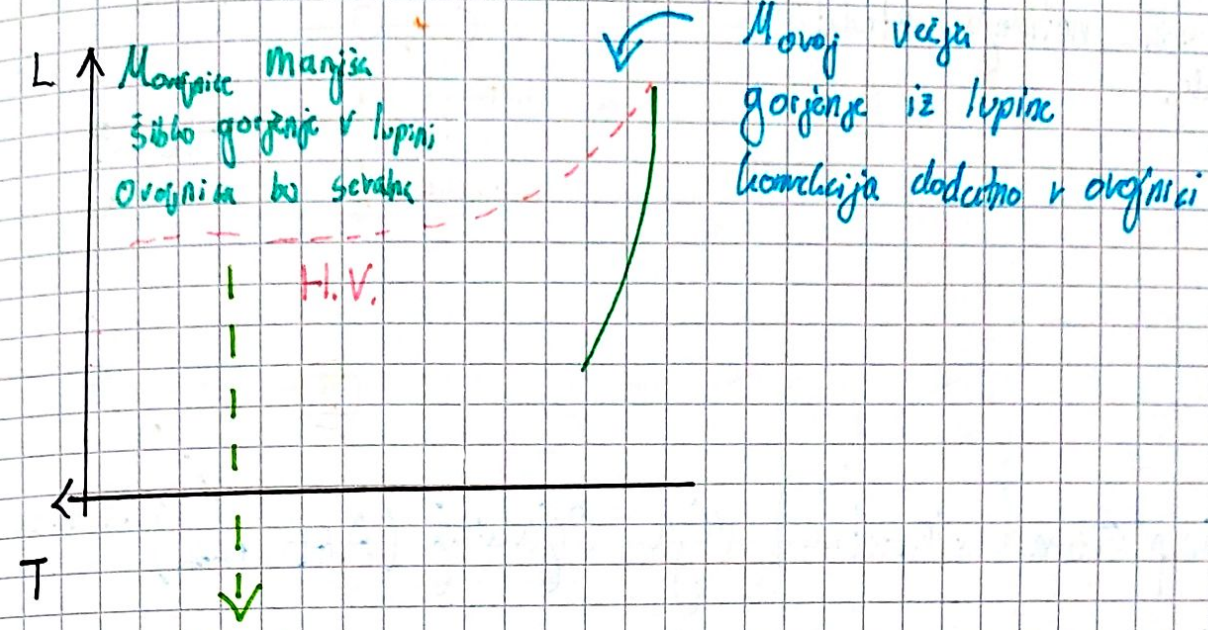 L
Movojnice manjša
šibko gorjenje v lupini
Ovojnica bo
H.V.
T
Movoj večja
gorjenje iz lupine
konvekcija dodatno v ovojnici